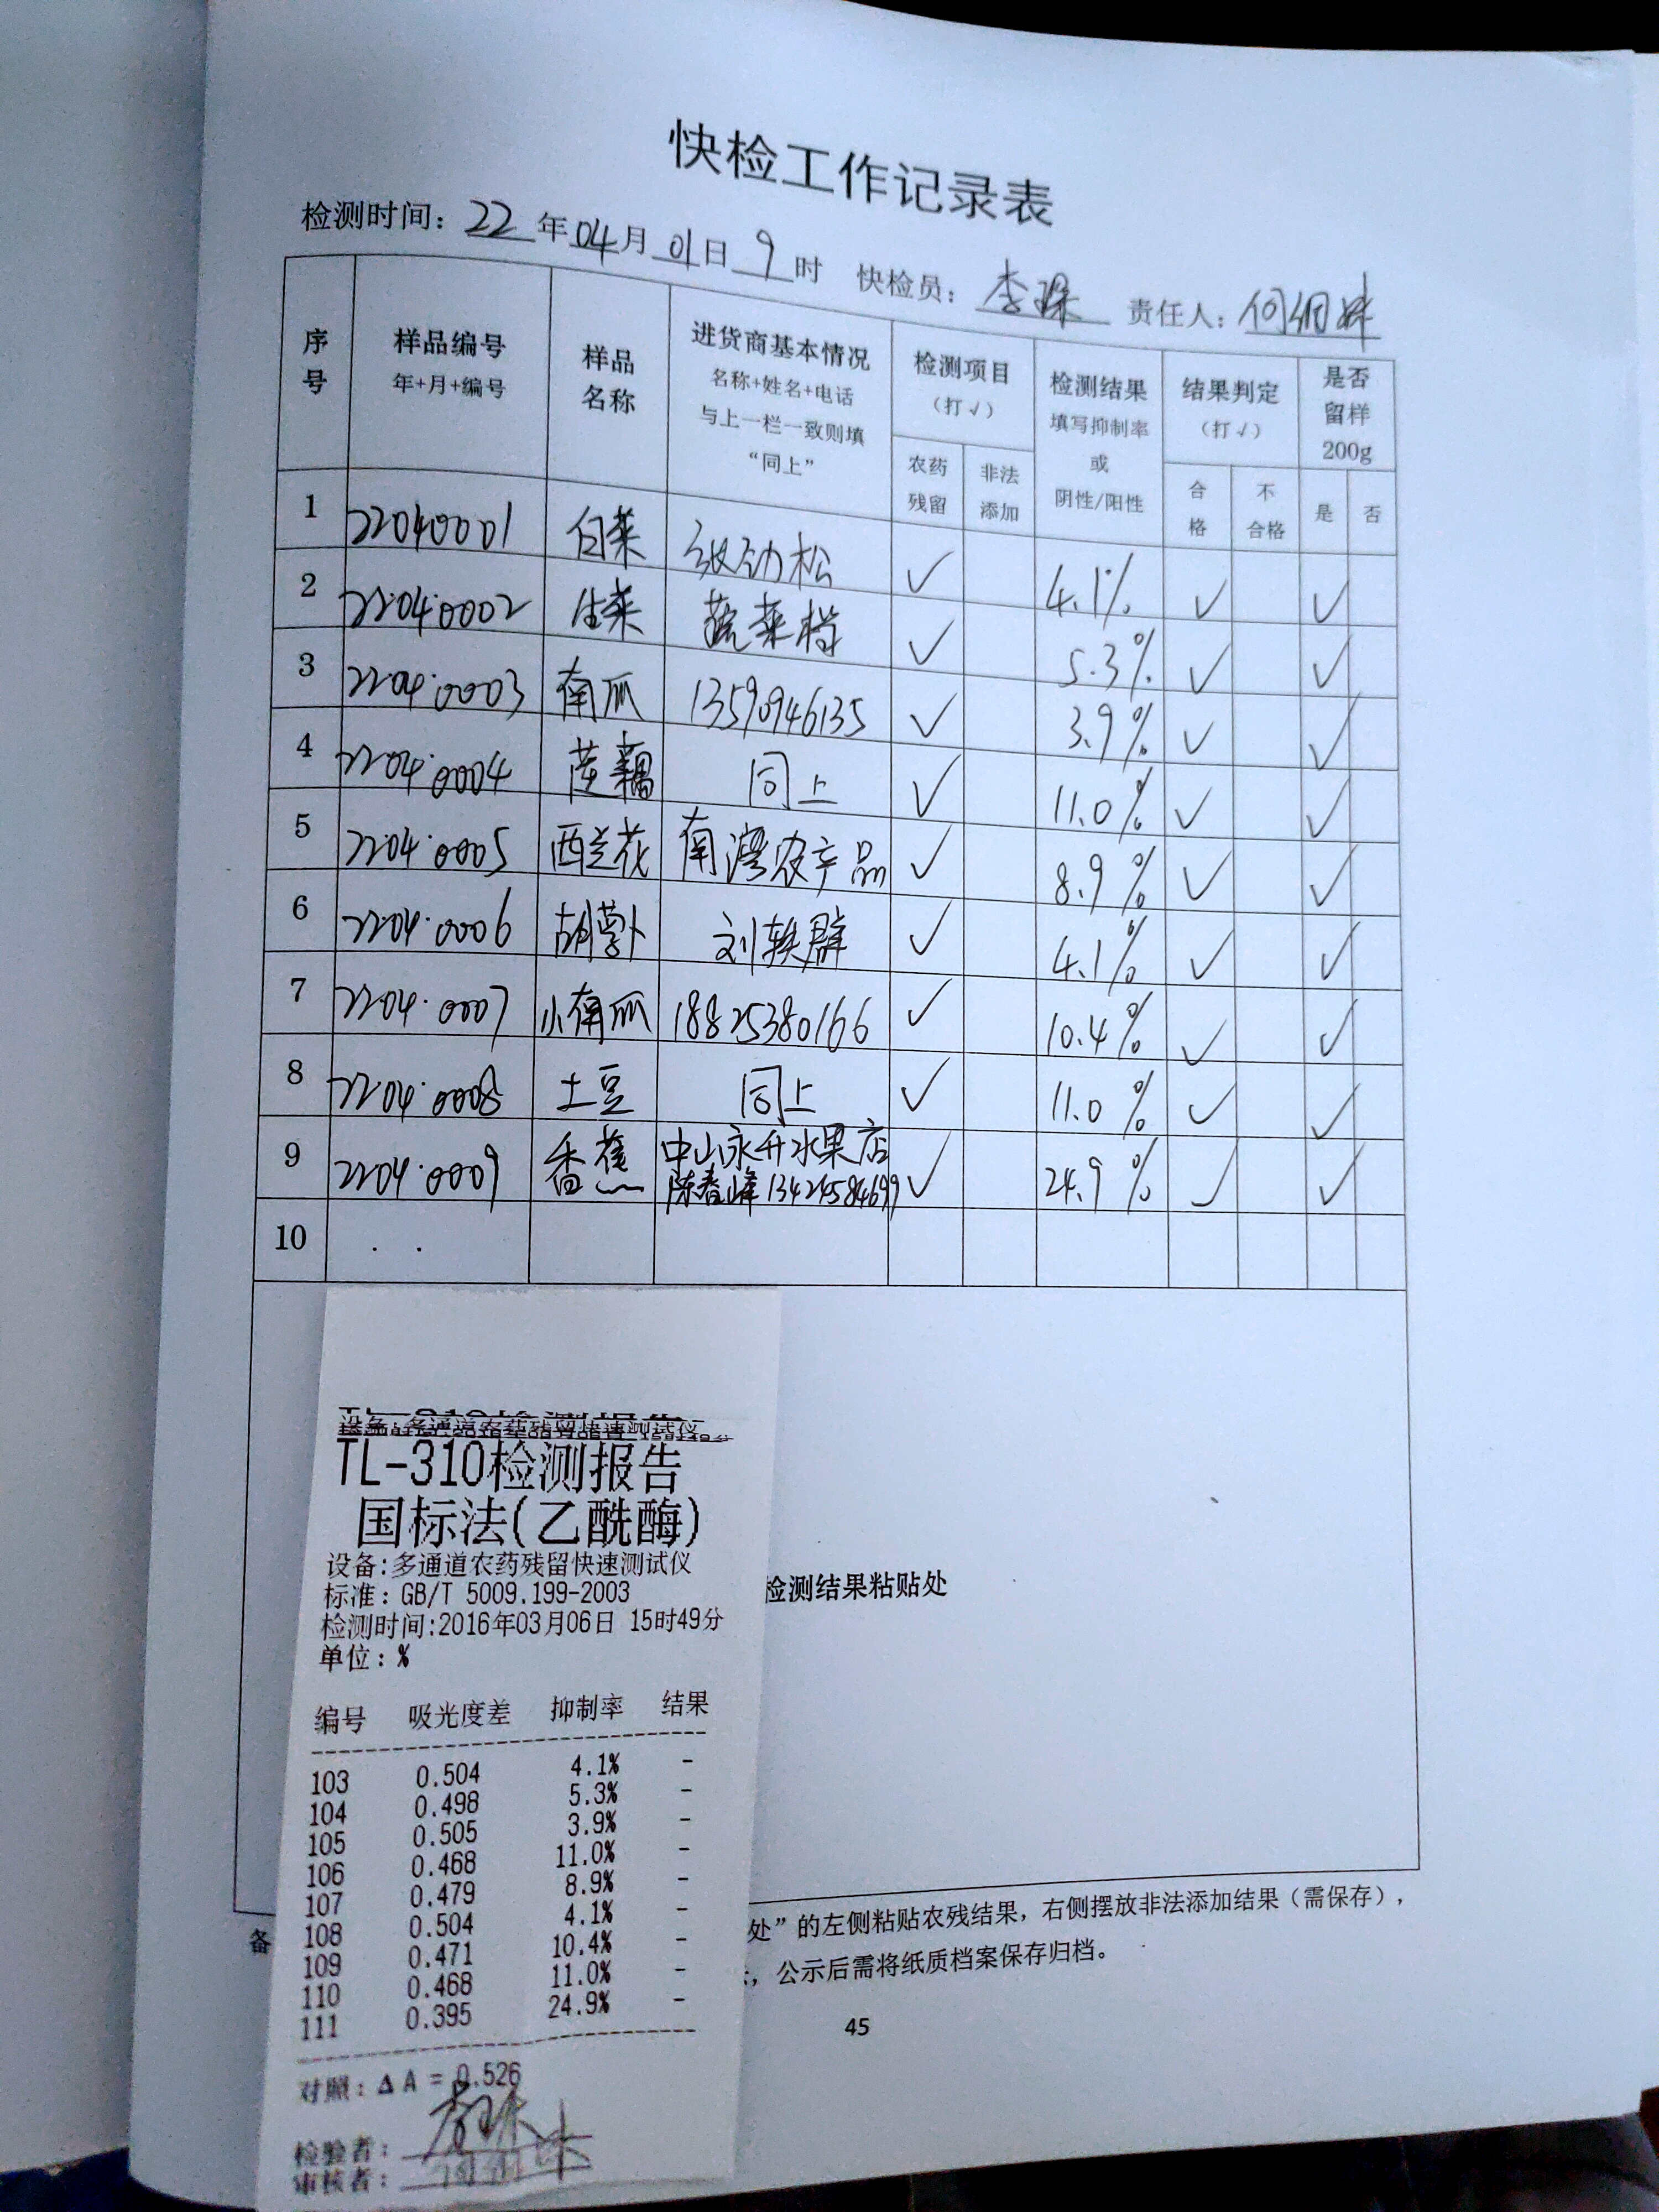 快检工作记录表
检测时间：22年04月01日9时 快检员：李珠 责任人：何细妹
序号 样品编号 年+月+编号 样品名称 进货商基本情况 名称+姓名+电话 与上一栏一致则填“同上” 检测项目（打√） 农药残留 非法添加 检测结果 填写抑制率或阴性/阳性 结果判定（打√） 合格 不合格 是否留样200g 是 否
1 22040001 白菜 张劲松 √ 4.1% √ √
2 22040002 生菜 蔬菜档 √ 5.3% √ √
3 22040003 南瓜 13590946135 √ 3.9% √ √
4 22040004 莲藕 同上 √ 11.0% √ √
5 22040005 西兰花 南湾农产品 √ 8.9% √ √
6 22040006 胡萝卜 刘轶群 √ 4.1% √ √
7 22040007 小南瓜 18825380166 √ 10.4% √ √
8 22040008 土豆 同上 √ 11.0% √ √
9 22040009 香蕉 中山永升水果店 陈春峰 13424584699 √ 24.9% √ √
10
设备:多通道农药残留快速测试仪
TL-310检测报告
国标法(乙酰酶)
设备:多通道农药残留快速测试仪
标准：GB/T 5009.199-2003
检测时间:2016年03月06日 15时49分
单位：%
检测结果粘贴处
编号 吸光度差 抑制率 结果
103 0.504 4.1% -
104 0.498 5.3% -
105 0.505 3.9% -
106 0.468 11.0% -
107 0.479 8.9% -
108 0.504 4.1% -
109 0.471 10.4% -
110 0.468 11.0% -
111 0.395 24.9% -
对照：ΔA = 0.526
检验者：李珠
审核者：
备
处”的左侧粘贴农残结果，右侧摆放非法添加结果（需保存），
，公示后需将纸质档案保存归档。
45